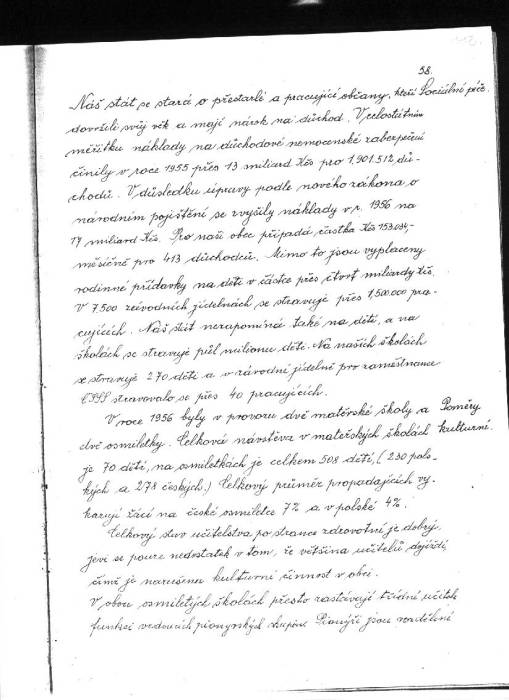 58.
Náš stát se stará o přestarlé a pracující občany, kteří Sociální péče.
dovršili svůj věk a mají nárok na důchod. V celostátním
měřítku náklady na důchodové nemocenské zabezpečení
činily v roce 1955 přes 13 miliard Kčs pro 1,901.512 dů-
chodů. V důsledku úpravy podle nového zákona o
národním pojištění se zvýšily náklady v r. 1956 na
17 miliard Kčs. Pro naši obec připadá částka Kčs 153.034,-
měsíčně pro 413 důchodců. Mimo to jsou vyplaceny
rodinné přídavky na děti v částce přes čtvrt miliardy Kčs.
V 7.500 závodních jídelnách se stravuje přes 1,500.000 pra-
cujících. Náš stát nezapomíná také na děti, a na
školách se stravuje půl milionu dětí. Na našich školách
se stravuje 270 dětí a v závodní jídelně pro zaměstnance
ČSSS stravovalo se přes 40 pracujících.
V roce 1956 byly v provozu dvě mateřské školy a Poměry
dvě osmiletky. Celková návštěva v mateřských školách kulturní.
je 70 dětí, na osmiletkách je celkem 508 dětí, (230 pols-
kých a 278 českých.) Celkový průměr propadajících vy-
kazují žáci na české osmiletce 7% a v polské 4%.
Celkový stav učitelstva po stránce zdravotní je dobrý,
jeví se pouze nedostatek v tom, že většina učitelů dojíždí,
čímž je narušena kulturní činnost v obci.
V obou osmiletých školách přesto zastávají třídní učitelé
funkci vedoucích pionýrských skupin. Pionýři jsou rozděleni